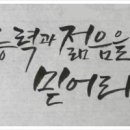 능력과 젊음을
믿어라